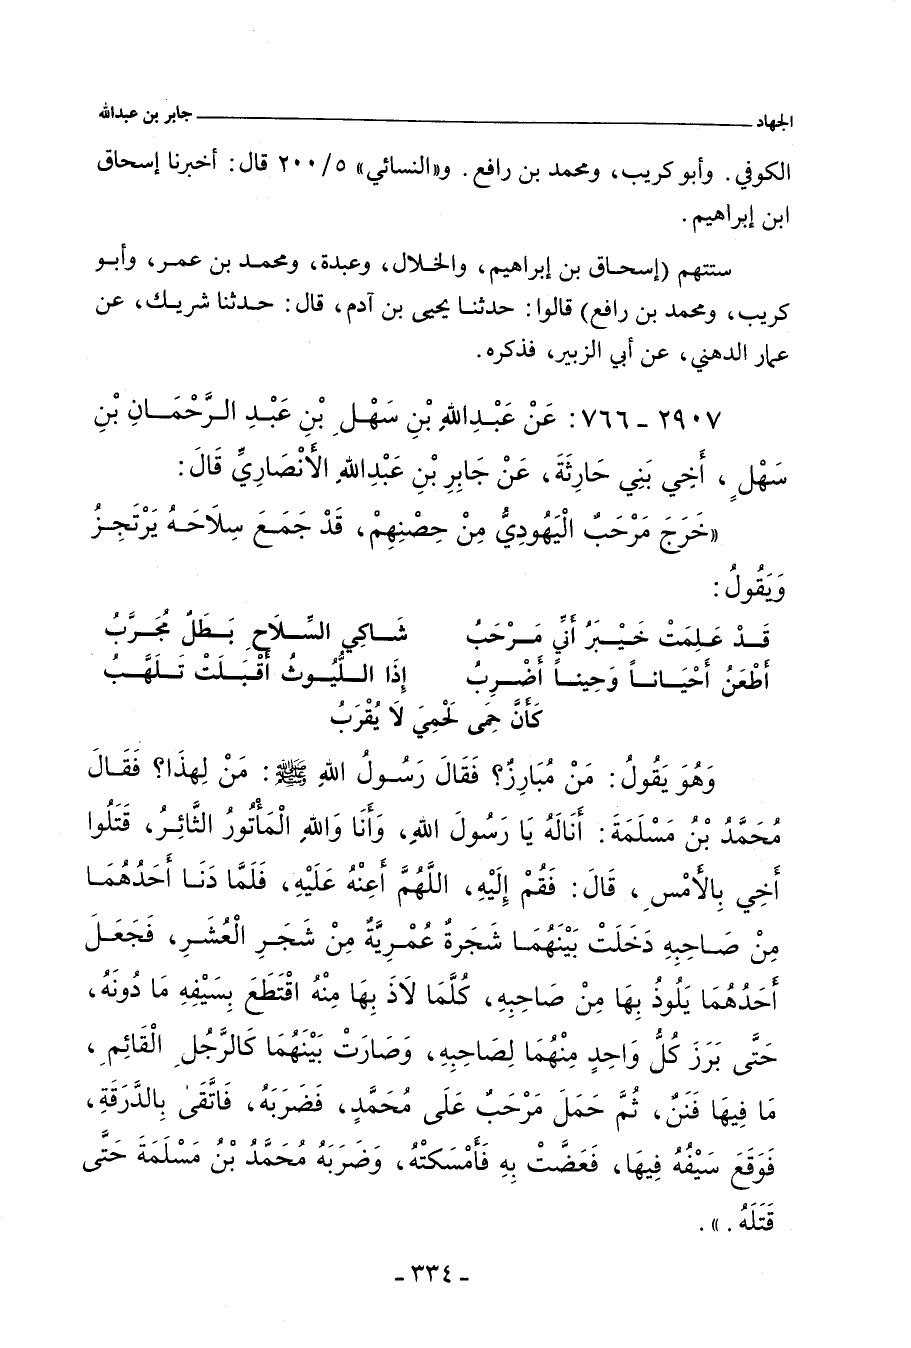 الجهاد ــــــــ جابر بن عبدالله
الكوفي. وأبو كريب، ومحمد بن رافع. و«النسائي» ٢٠٠/٥ قال: أخبرنا إسحاق
ابن إبراهيم.
ستتهم (إسحاق بن إبراهيم، والخلال، وعبدة، ومحمد بن عمر، وأبو
كريب، ومحمد بن رافع) قالوا: حدثنا يحيى بن آدم، قال: حدثنا شريك، عن
عمار الدهني، عن أبي الزبير، فذكره.
٢٩٠٧ - ٧٦٦: عَنْ عَبْدِاللهِ بْنِ سَهْلِ بْنِ عَبْدِ الرَّحْمَانِ بْنِ
سَهْلٍ، أَخِي بَنِي حَارِثَةَ، عَنْ جَابِرِ بْنِ عَبْدِاللهِ الأَنْصَارِيِّ قَالَ:
«خَرَجَ مَرْحَبٌ الْيَهُودِيُّ مِنْ حِصْنِهِمْ، قَدْ جَمَعَ سِلَاحَهُ يَرْتَجِزُ
وَيَقُولُ:
قَدْ عَلِمَتْ خَيْبَرُ أَنِّي مَرْحَبُ شَاكِي السِّلَاحِ بَطَلٌ مُجَرَّبُ
أَطْعَنُ أَحْيَاناً وَحِيناً أَضْرِبُ إِذَا اللُّيُوثُ أَقْبَلَتْ تَلَهَّبُ
كَأَنَّ حِمَى لَحْمِيَ لَا يُقْرَبُ
وَهُوَ يَقُولُ: مَنْ مُبَارِزٌ؟ فَقَالَ رَسُولُ اللهِ ﷺ: مَنْ لِهذَا؟ فَقَالَ
مُحَمَّدُ بْنُ مَسْلَمَةَ: أَنَالَهُ يَا رَسُولَ اللهِ، وَأَنَا وَاللهِ الْمَأْتُورُ الثَّائِرُ، قَتَلُوا
أَخِي بِالأَمْسِ، قَالَ: فَقُمْ إِلَيْهِ، اللَّهُمَّ أَعِنْهُ عَلَيْهِ، فَلَمَّا دَنَا أَحَدُهُمَا
مِنْ صَاحِبِهِ دَخَلَتْ بَيْنَهُمَا شَجَرَةٌ عُمْرِيَّةٌ مِنْ شَجَرِ الْعُشَرِ، فَجَعَلَ
أَحَدُهُمَا يَلُوذُ بِهَا مِنْ صَاحِبِهِ، كُلَّمَا لَاذَ بِهَا مِنْهُ اقْتَطَعَ بِسَيْفِهِ مَا دُونَهُ،
حَتَّى بَرَزَ كُلُّ وَاحِدٍ مِنْهُمَا لِصَاحِبِهِ، وَصَارَتْ بَيْنَهُمَا كَالرَّجُلِ الْقَائِمِ،
مَا فِيهَا فَنَنٌ، ثُمَّ حَمَلَ مَرْحَبٌ عَلَى مُحَمَّدٍ، فَضَرَبَهُ، فَاتَّقَىٰ بِالدَّرَقَةِ،
فَوَقَعَ سَيْفُهُ فِيهَا، فَعَضَّتْ بِهِ فَأَمْسَكَتْهُ، وَضَرَبَهُ مُحَمَّدُ بْنُ مَسْلَمَةَ حَتَّى
قَتَلَهُ.».
- ٣٣٤ -